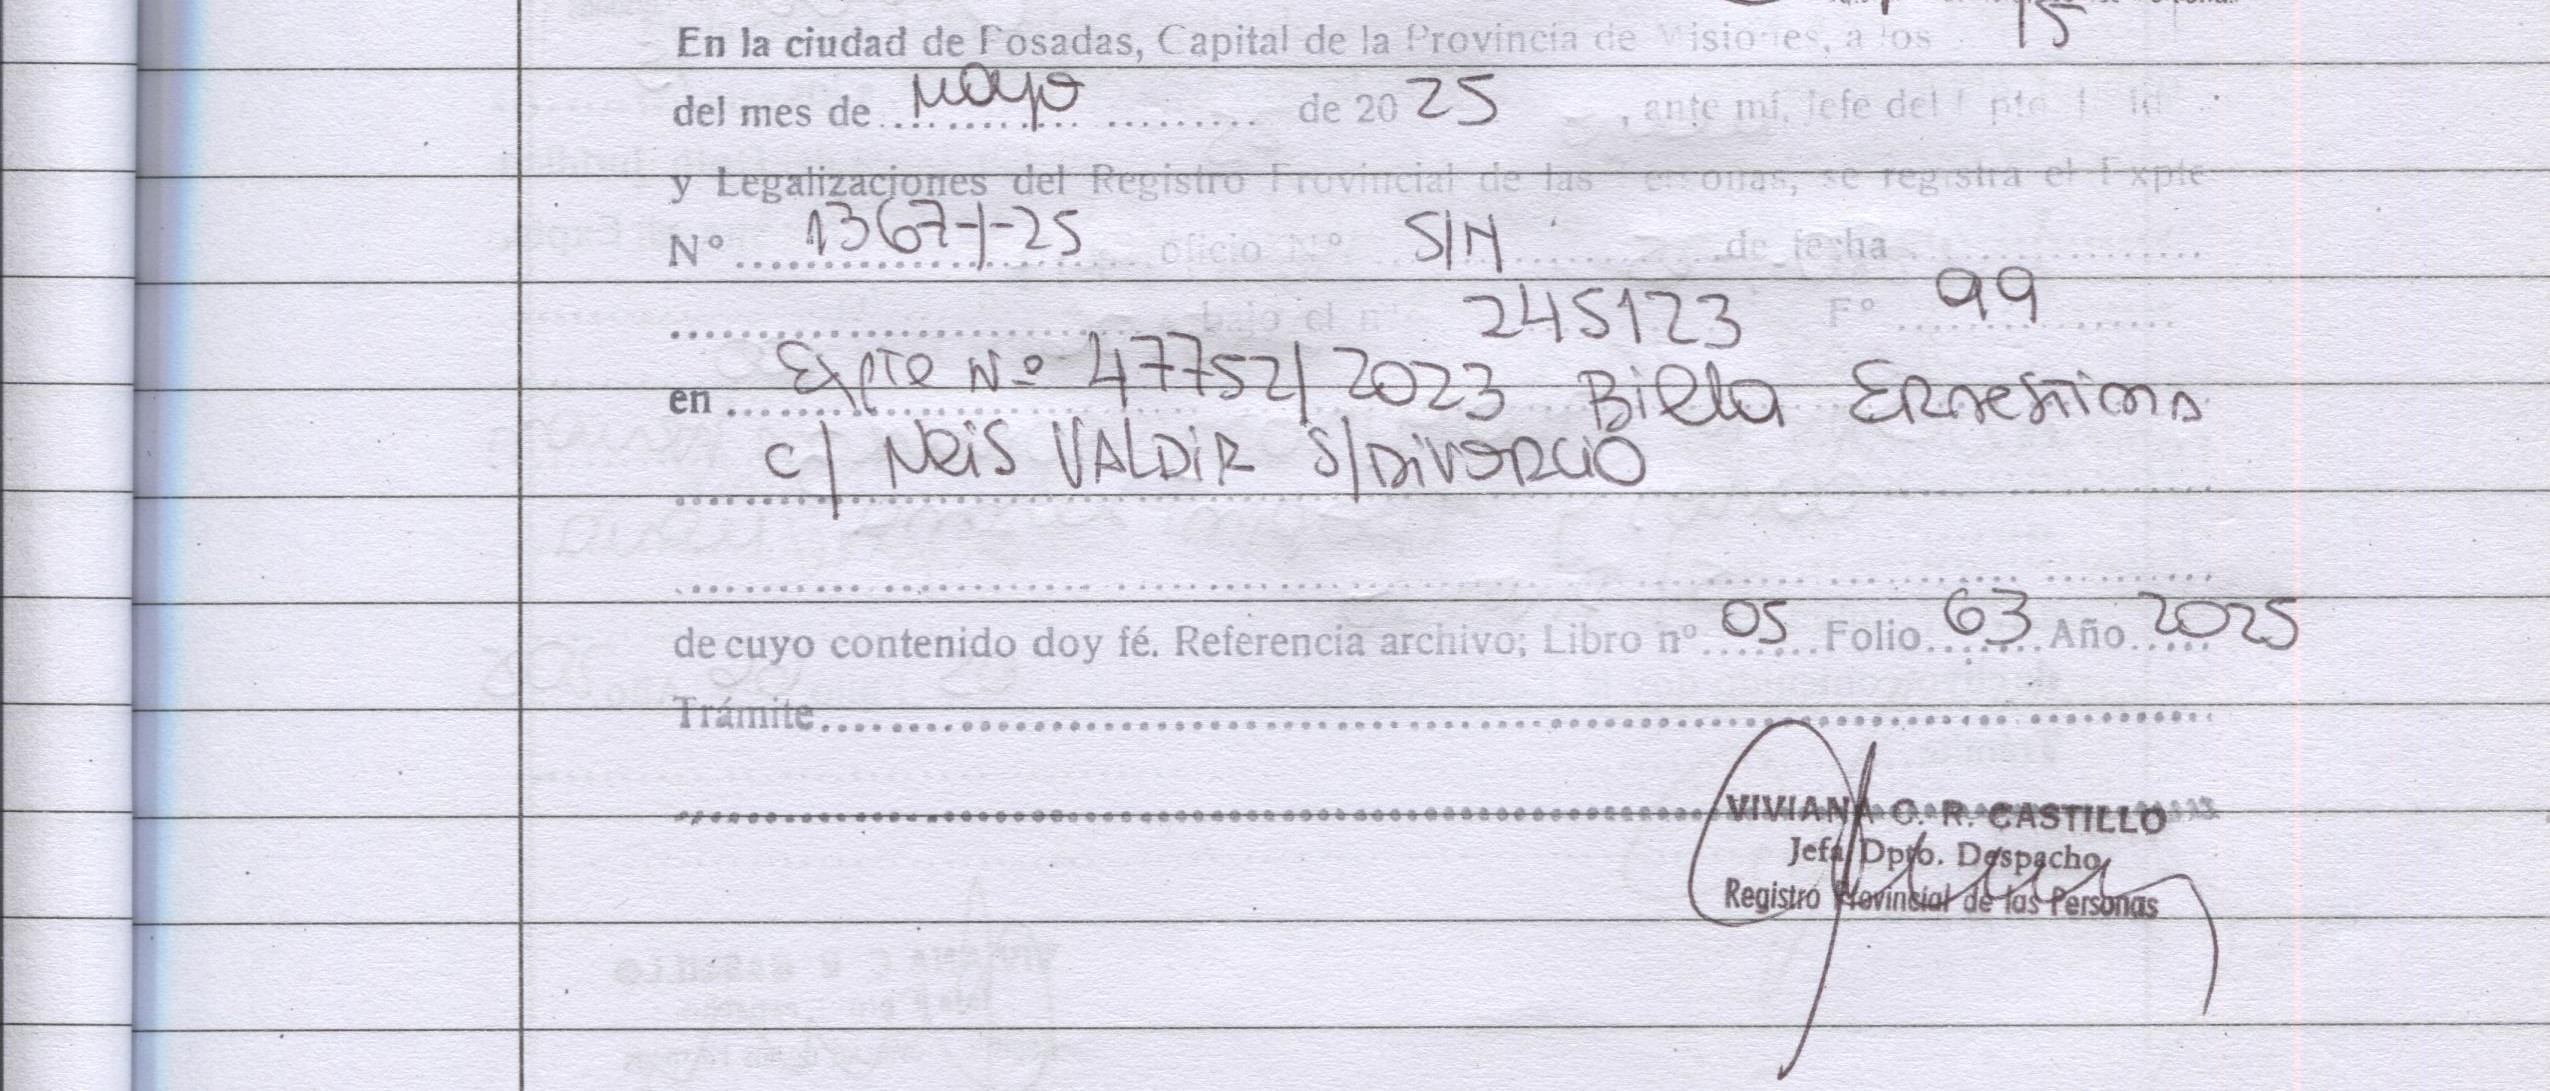 En la ciudad de Posadas, Capital de la Provincia de Misiones, a los 15
del mes de mayo de 2025, ante mí, Jefe del Dpto.
y Legalizaciones del Registro Provincial de las Personas, se registra el Expte
Nº 1367-I-25 oficio Nº S/N de fecha
bajo el nº 245123 Fº 99
en Expte Nº 47752/2023 Biela Ernestina
c/ Neis VALDIR S/DIVORCIO
de cuyo contenido doy fé. Referencia archivo; Libro nº 05 Folio 63 Año 2025
Trámite
VIVIANA C. R. CASTILLO
Jefa Dpto. Despacho
Registro Provincial de las Personas